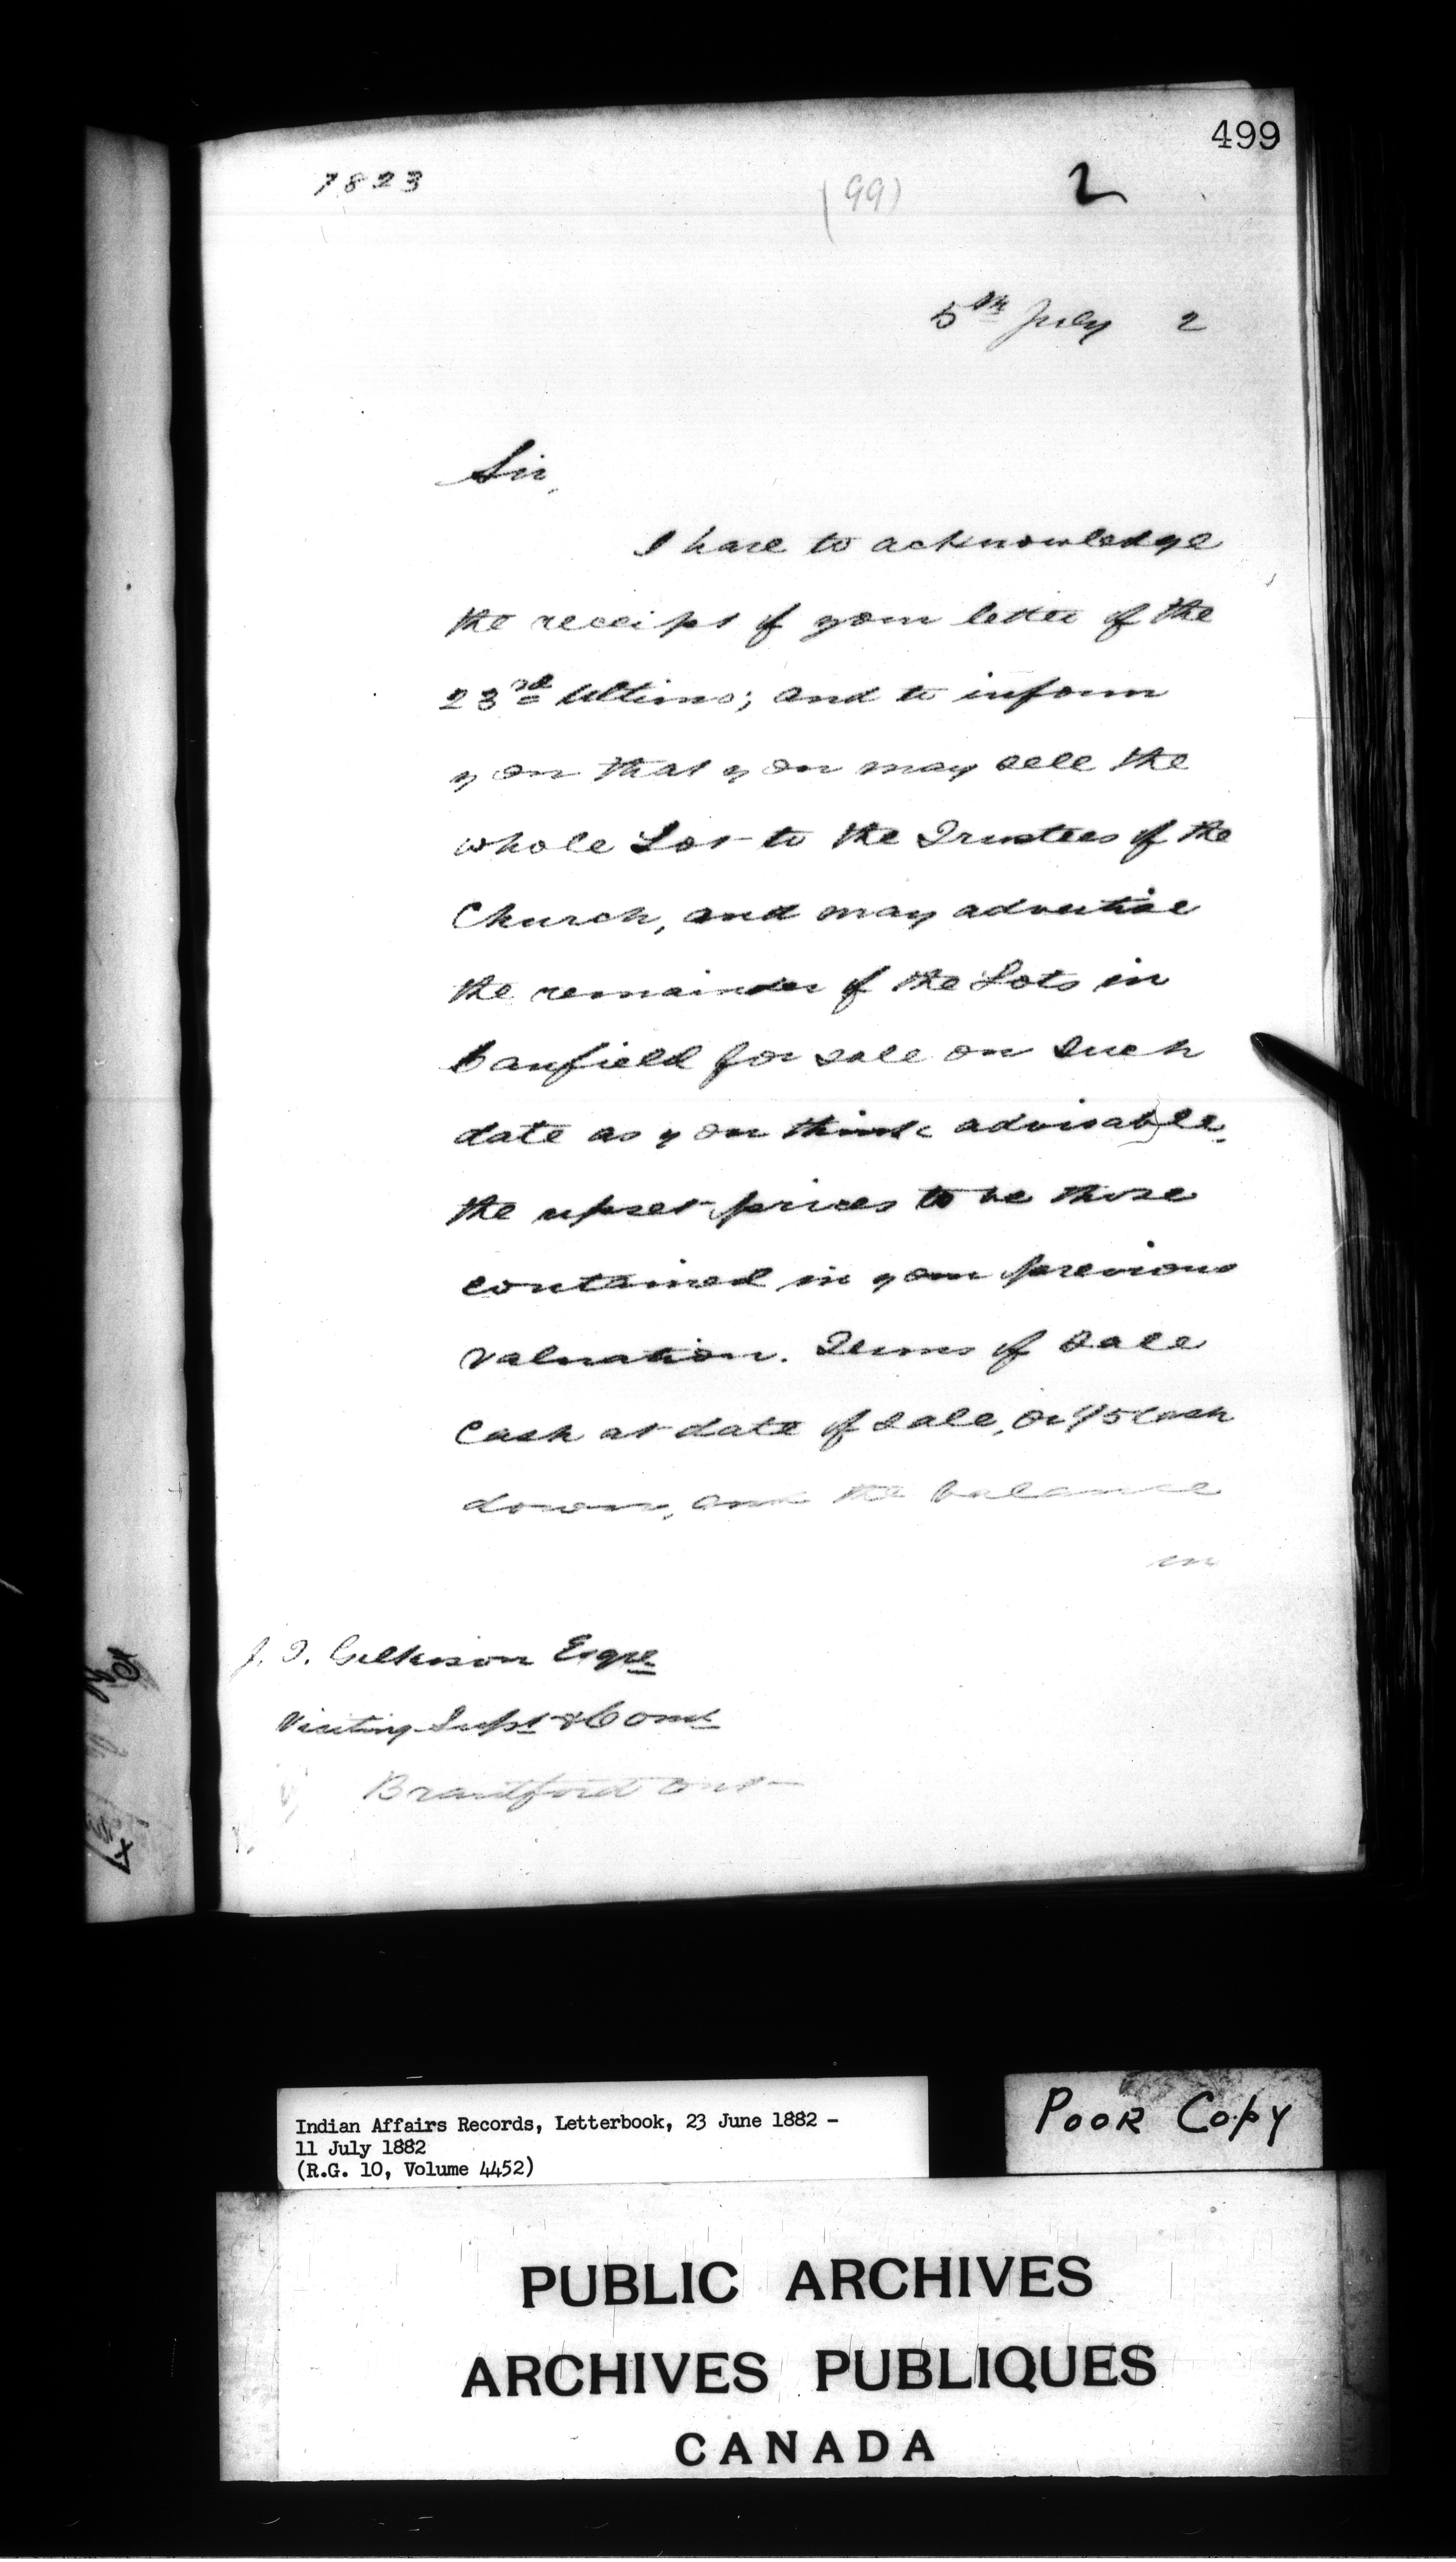 499
7823
(99)
2
5th July 2
Sir,
I have to acknowledge
the receipt of your letter of the
23rd Ultimo; and to inform
you that you may sell the
whole Lot to the Trustees of the
Church, and may advertise
the remainder of the Lots in
Canfield for sale on such
date as you think advisable,
the upset prices to be those
contained in your previous
valuation. Terms of Sale
Cash at date of Sale, or 1/5 cash
down, and the balance
in
J. T. Gilkison Esqre
Visiting Supt & Comr
Brantford Ont
Indian Affairs Records, Letterbook, 23 June 1882 –
11 July 1882
(R.G. 10, Volume 4452)
POOR COPY
PUBLIC ARCHIVES
ARCHIVES PUBLIQUES
CANADA